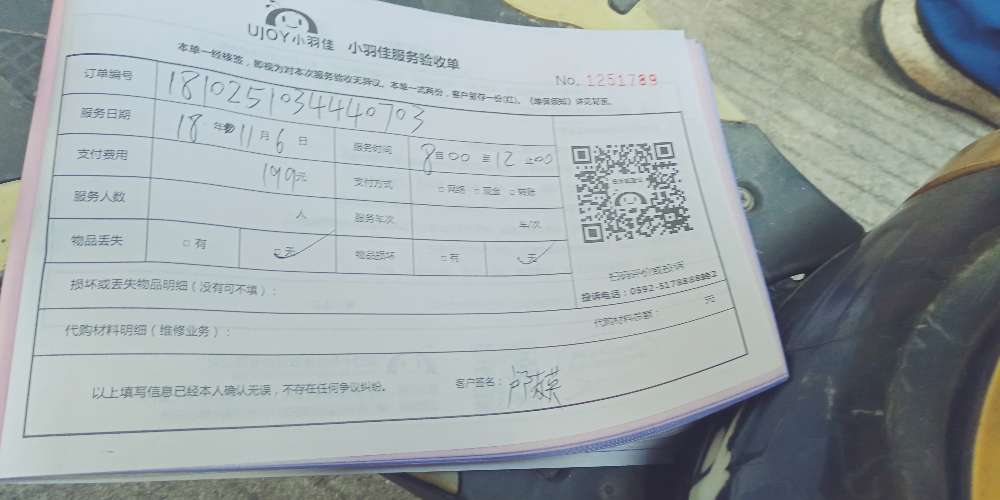 UJOY小羽佳 小羽佳服务验收单
本单一经核签，即视为对本次服务验收无异议。本单一式两份，客户留存一份(红)。《维保须知》详见背面。
No. 1251789
订单编号 1810251034440703
服务日期 18 年 11 月 6 日 服务时间 8 00 至 12 00
支付费用 199元 支付方式 □ 网络 □ 现金 □ 转账
服务人数 人 服务车次 车/次
物品丢失 □ 有 □ 无 物品损坏 □ 有 □ 无
投诉电话：0592-5178888
损坏或丢失物品明细（没有可不填）：
代购材料明细（维修业务）： 代购材料总额： 元
以上填写信息已经本人确认无误，不存在任何争议纠纷。 客户签名：